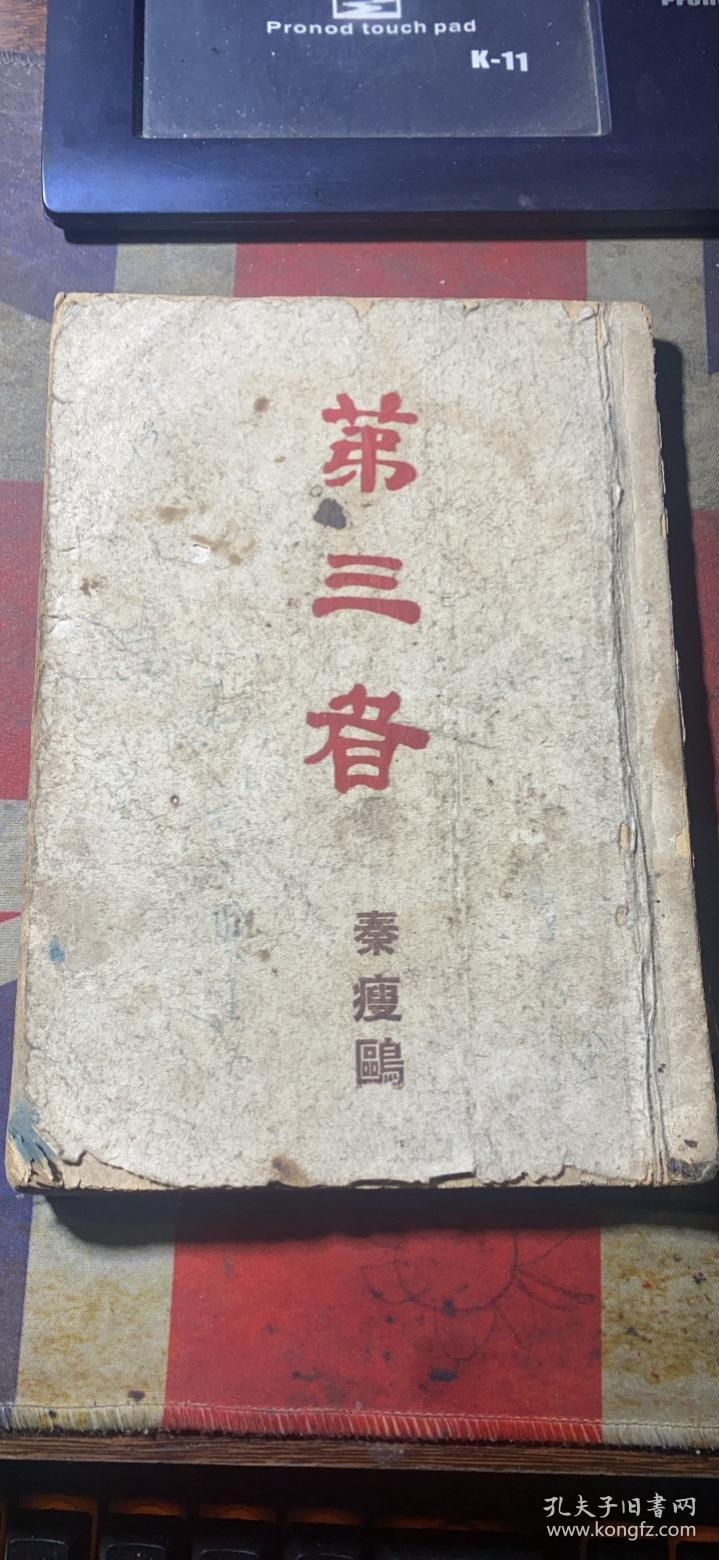 Pronod touch pad
K-11
第三者
秦瘦鷗
孔夫子旧書网
www.kongfz.com